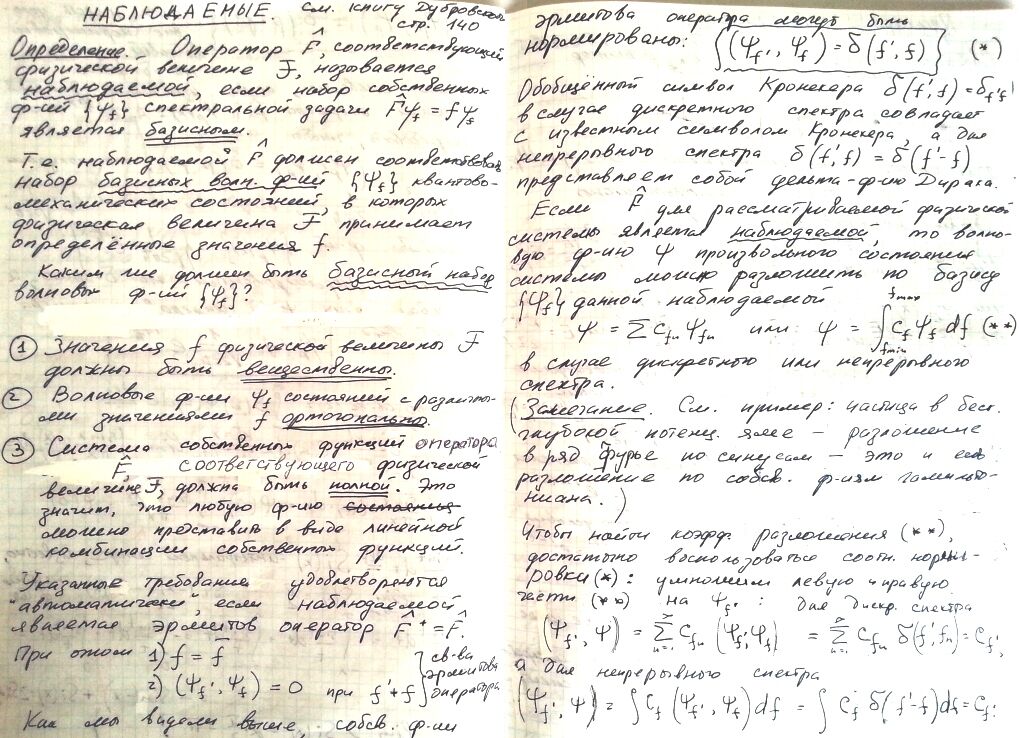 НАБЛЮДАЕМЫЕ. См. книгу Дубровского
стр. 140
Определение. Оператор F̂, соответствующий
физической величине F, называется
наблюдаемой, если набор собственных
ф-ий {Ψf} спектральной задачи F̂Ψf = fΨf
является базисным.
Т.е. наблюдаемой F̂ должен соответствовать
набор базисных волн. ф-ий {Ψf} квантово-
механических состояний, в которых
физическая величина F принимает
определённые значения f.
Каким же должен быть базисный набор
волновых ф-ий {Ψf}?
① Значения f физической величины F
должны быть вещественны.
② Волновые ф-ии Ψf состояний с различны-
ми значениями f ортогональны.
③ Система собственных функций оператора
F̂, соответствующего физической
величине F, должна быть полной. Это
значит, что любую ф-ию состояния
можно представить в виде линейной
комбинации собственных функций.
Указанные требования удовлетворяются
"автоматически", если наблюдаемой
является эрмитов оператор F̂⁺ = F̂.
При этом 1) f = f̄
2) (Ψf', Ψf) = 0 при f' ≠ f } св-ва эрмитова оператора
Как мы видели выше, собств. ф-ии
эрмитова оператора могут быть
нормированы: {(Ψf', Ψf) = δ(f', f)} (*)
Обобщённый символ Кронекера δ(f', f) = δf'f
в случае дискретного спектра совпадает
с известным символом Кронекера, а для
непрерывного спектра δ(f', f) = δ(f' - f)
представляет собой дельта-ф-ию Дирака.
Если F̂ для рассматриваемой физической
системы является наблюдаемой, то волно-
вую ф-ию Ψ произвольного состояния
системы можно разложить по базису
{Ψf} данной наблюдаемой
Ψ = Σ Cfn Ψfn или: Ψ = ∫fmin^fmax Cf Ψf df (**)
в случае дискретного или непрерывного
спектра.
(Замечание. См. пример: частица в беск.
глубокой потенц. яме – разложение
в ряд Фурье по синусам – это и есть
разложение по собств. ф-иям гамильто-
ниана.)
Чтобы найти коэфф. разложения (**),
достаточно воспользоваться соотн. норми-
ровки (*): умножим левую и правую
части (**) на Ψf': для дискр. спектра
(Ψf', Ψ) = Σn=1^∞ Cfn (Ψf', Ψf) = Σn=1^∞ Cfn δ(f', fn) = Cf',
а для непрерывного спектра
(Ψf', Ψ) = ∫ Cf (Ψf', Ψf) df = ∫ Cf δ(f' - f) df = Cf'.